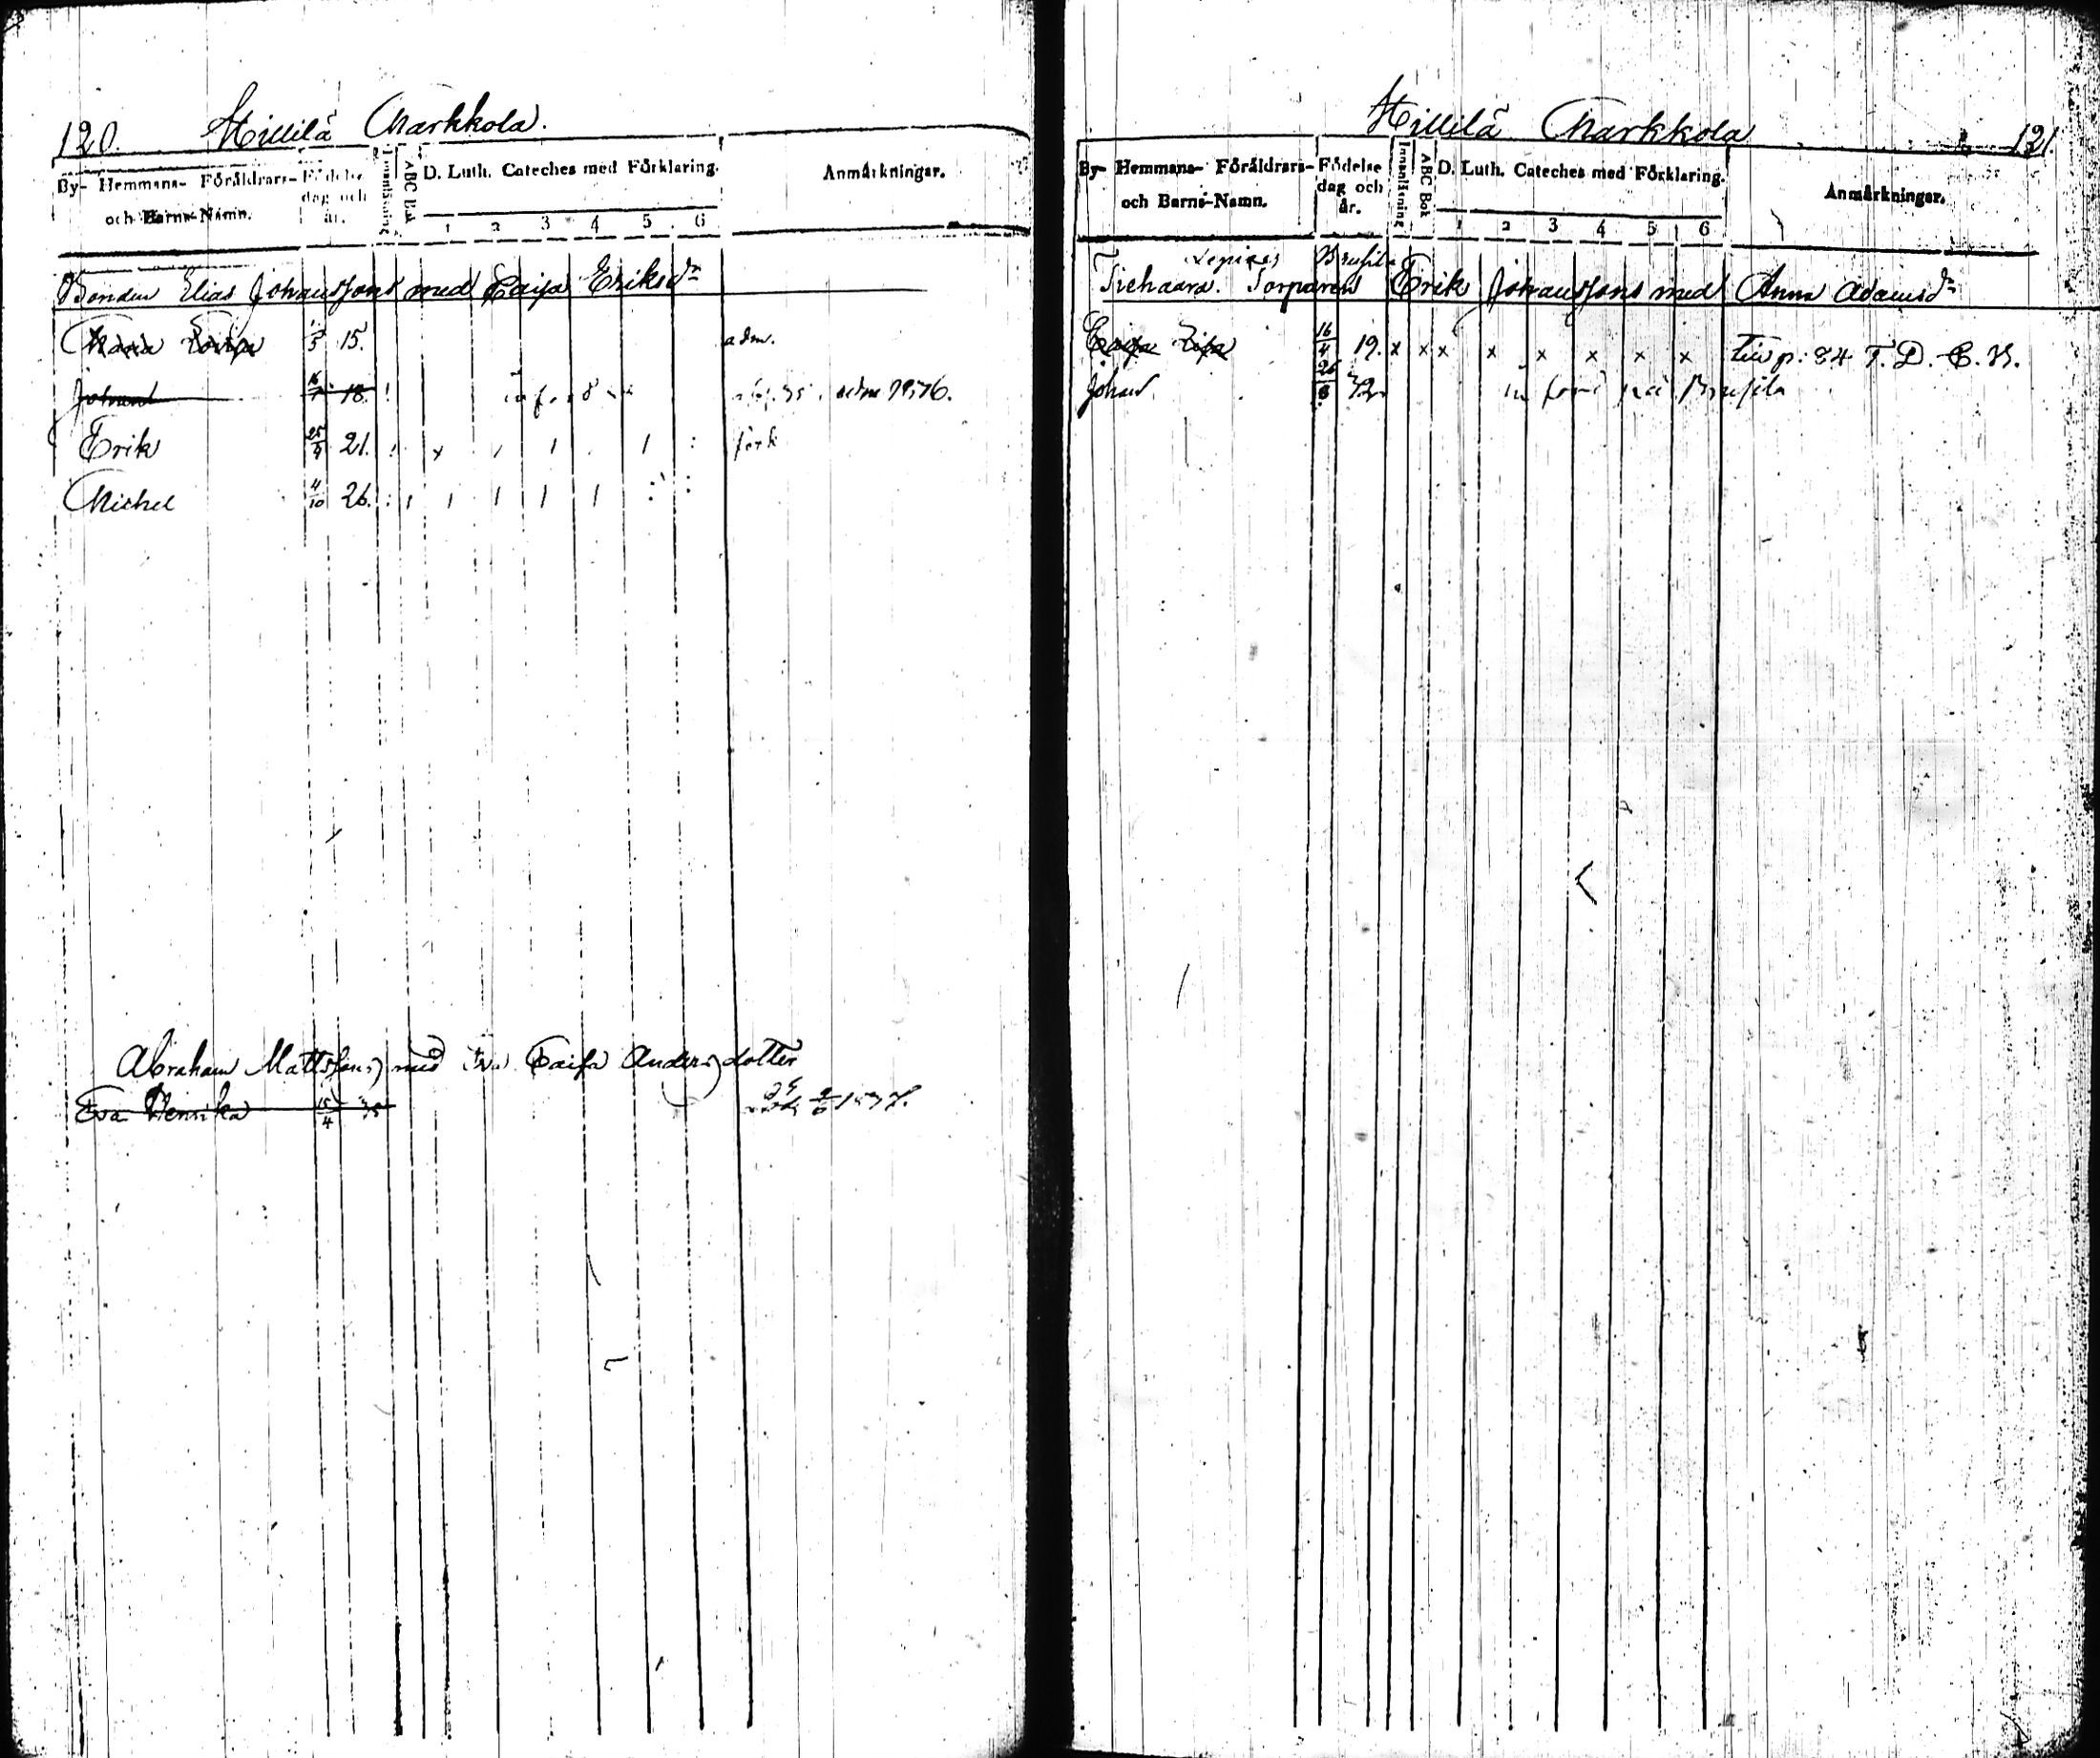 120. Hillilä Markkola.
By- Hemmans- Föräldrars- och Barns-Namn. Födelse dag och år. Innanläsning ABC Bok D. Luth. Cateches med Förklaring. Anmärkningar.
1 2 3 4 5 6
Bonden Elias Johanssons med Caisa Eriksdr
Maria Lovisa 1/5 15. adm.
Johan 18. adm 1836.
Erik 25/9 21. förk
Michel 4/10 26.
Abraham Mattssons med Caisa Andersdotter
Eva Henrika 15/4 35 1837.
Hillilä Markkola 121.
By- Hemmans- Föräldrars- och Barns-Namn. Födelse dag och år. Innanläsning ABC Bok D. Luth. Cateches med Förklaring. Anmärkningar.
1 2 3 4 5 6
Brusila
Tiehaara. Torparens Erik Johanssons med Anna Adamsdr
Caisa Lisa 16/4 19. x x x x x x x x p: 84 T. D. C. K.
Johan 26/8 32 på Brusila